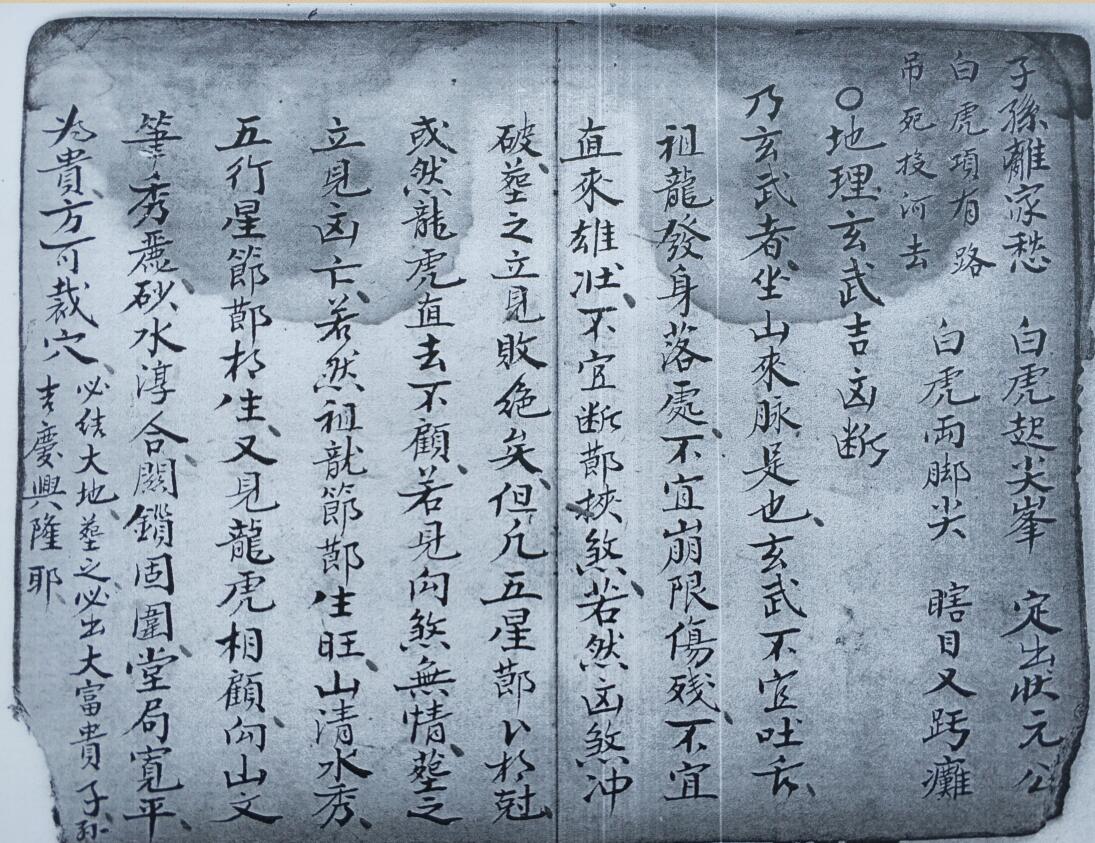 子孫離家愁　白虎起尖峯　定出狀元公
白虎項有路　白虎両脚尖　瞎目又跨癱
吊死投河去
○地理玄武吉凶断
乃玄武者、坐山來脉是也、玄武不宜吐舌、
祖龍發身落處、不宜崩限傷殘、不宜
直來雄壯、不宜断莭挾煞、若然凶煞冲
破、塟之立見敗绝矣、但凡五星莭公相尅、
或然龍虎直去不顧、若見向煞無情、塟之
立見凶亡、若然祖龍節莭生旺、山清水秀、
五行星節莭相生、又見龍虎相顧、向山文
筆秀麗、砂水淳合、関鎖固圍、堂局寬平、
为貴、方可裁穴、必结大地、塟之必出大富貴子孙
吉慶興隆耶